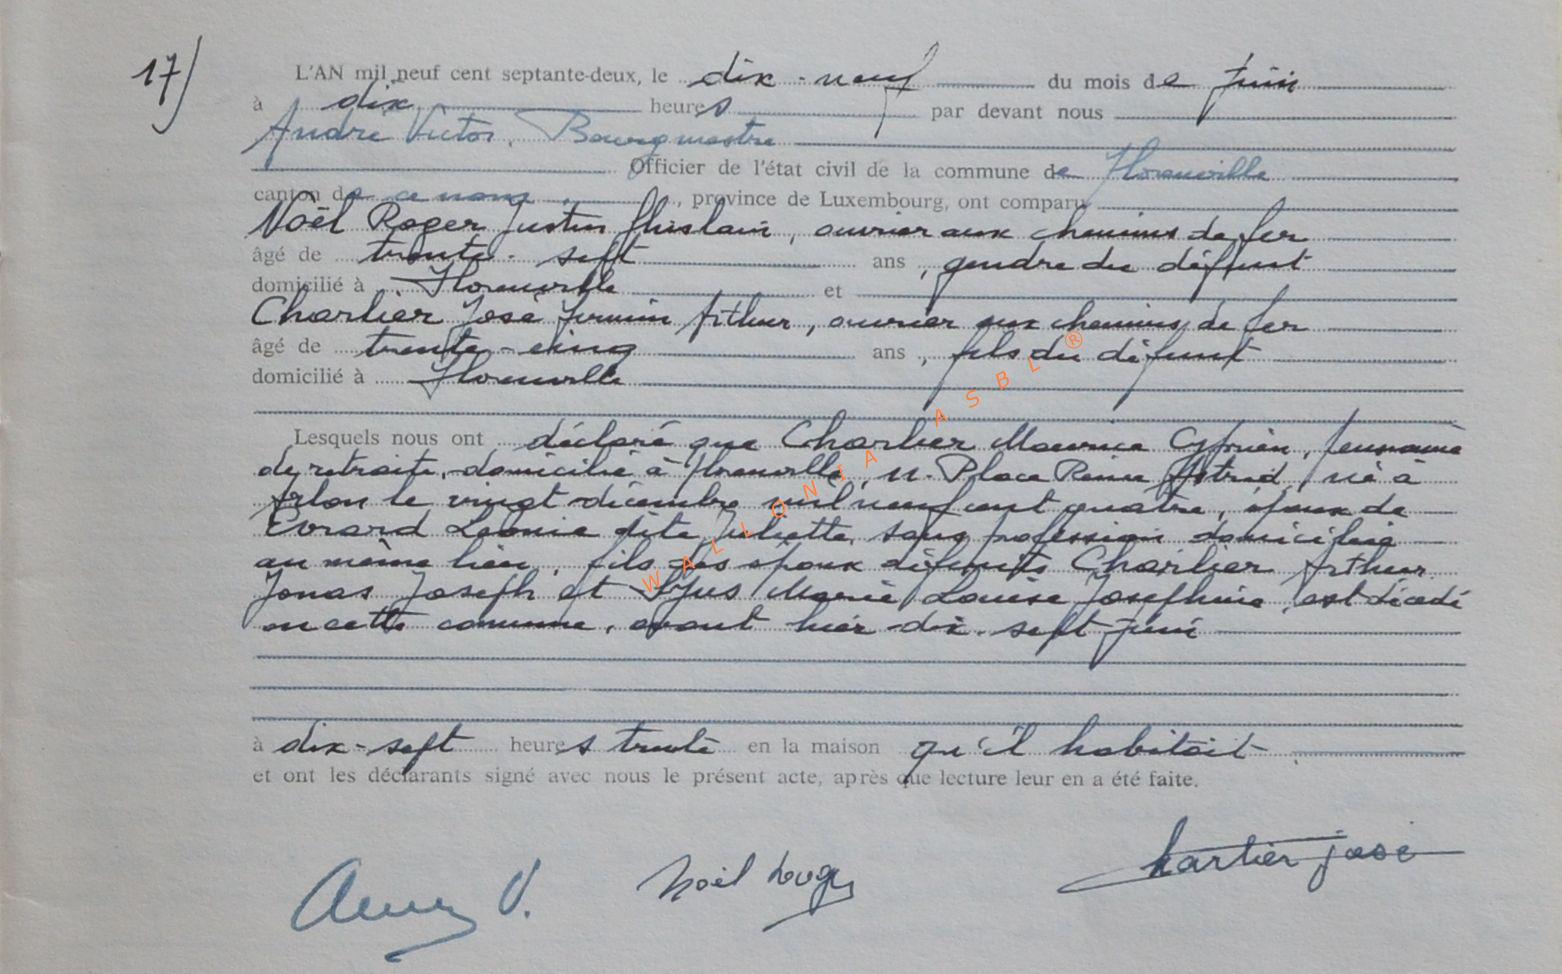 17)
L'AN mil neuf cent septante-deux, le dix-neuf du mois de juin
à dix heures par devant nous
André Victor, Bourgmestre
Officier de l'état civil de la commune de Florenville
canton de ce nom, province de Luxembourg, ont comparu
Noël Roger Justin Ghislain, ouvrier aux chemins de fer
âgé de trente-sept ans, gendre du défunt
domicilié à Florenville et
Charlier José Firmin Arthur, ouvrier aux chemins de fer
âgé de trente-cinq ans, fils du défunt
domicilié à Florenville
Lesquels nous ont déclaré que Charlier Maurice Cyprien, pensionné
de retraite, domicilié à Florenville, 11. Place Reine Astrid, né à
Arlon le vingt décembre mil neuf cent quatre, époux de
Evrard Léonie dite Juliette, sans profession domiciliée
au même lieu, fils des époux défunts Charlier Arthur
Jonas Joseph et Marie Louise Joséphine, est décédé
en cette commune, avant hier dix-sept juin
à dix-sept heures trente en la maison qu'il habitait
et ont les déclarants signé avec nous le présent acte, après que lecture leur en a été faite.
WALLONIA ASBL ®
V. Noël Charlier José